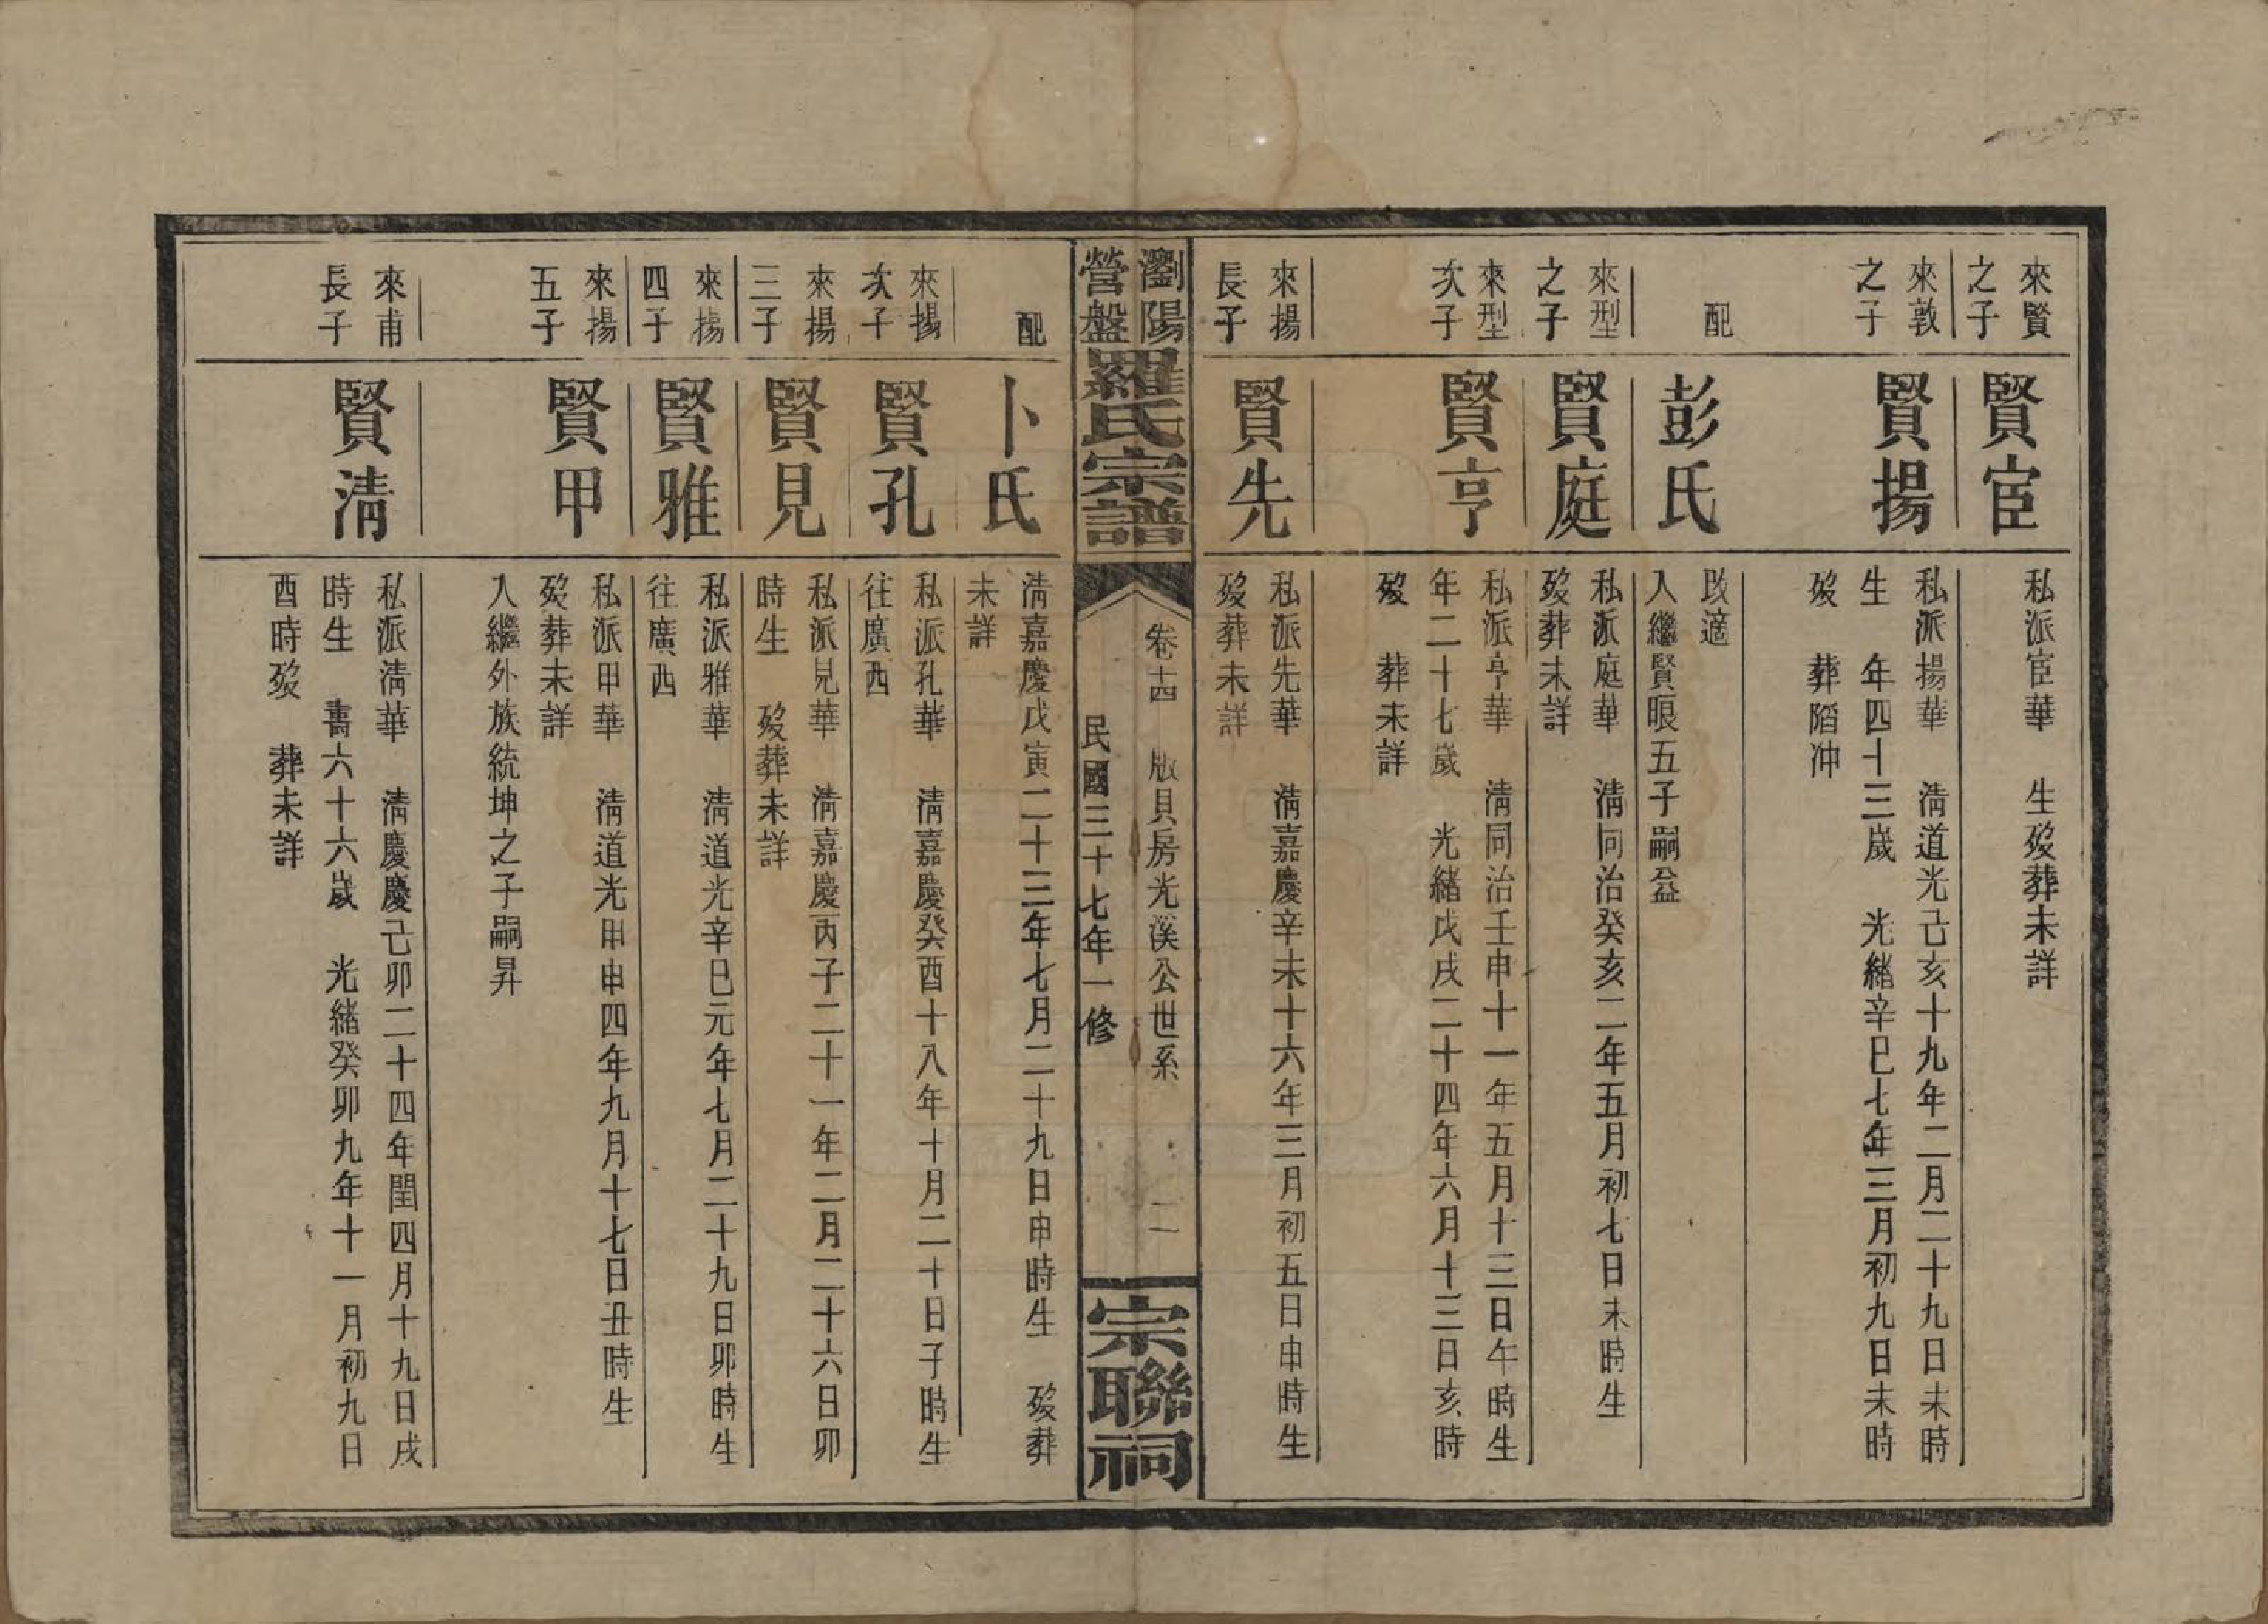 來賢
之子
賢宦
私派宦華　生歿葬未詳
來敦
之子
賢揚
私派揚華　淸道光己亥十九年二月二十九日未時
生　年四十三歲　光緒辛巳七年三月初九日未時
歿　葬䧟冲
配
彭氏
改適
入繼賢眼五子嗣益
來型
之子
賢庭
私派庭華　淸同治癸亥二年五月初七日未時生
歿葬未詳
來型
次子
賢亨
私派亨華　淸同治壬申十一年五月十三日午時生
年二十七歲　光緒戊戌二十四年六月十三日亥時
歿　葬未詳
來揚
長子
賢先
私派先華　淸嘉慶辛未十六年三月初五日申時生
歿葬未詳
瀏陽
營盤
羅氏宗譜
卷十四　版貝房光溪公世系　二
民國三十七年一修
宗聯祠
配
卜氏
淸嘉慶戊寅二十三年七月二十九日申時生　歿葬
未詳
來揚
次子
賢孔
私派孔華　淸嘉慶癸酉十八年十月二十日子時生
往廣西
來揚
三子
賢見
私派見華　淸嘉慶丙子二十一年二月二十六日卯
時生　歿葬未詳
來揚
四子
賢雅
私派雅華　淸道光辛巳元年七月二十九日卯時生
往廣西
來揚
五子
賢甲
私派甲華　淸道光甲申四年九月十七日丑時生
歿葬未詳
入繼外族統坤之子嗣昇
來甫
長子
賢淸
私派淸華　淸慶慶己卯二十四年閏四月十九日戌
時生　壽六十六歲　光緒癸卯九年十一月初九日
酉時歿　葬未詳